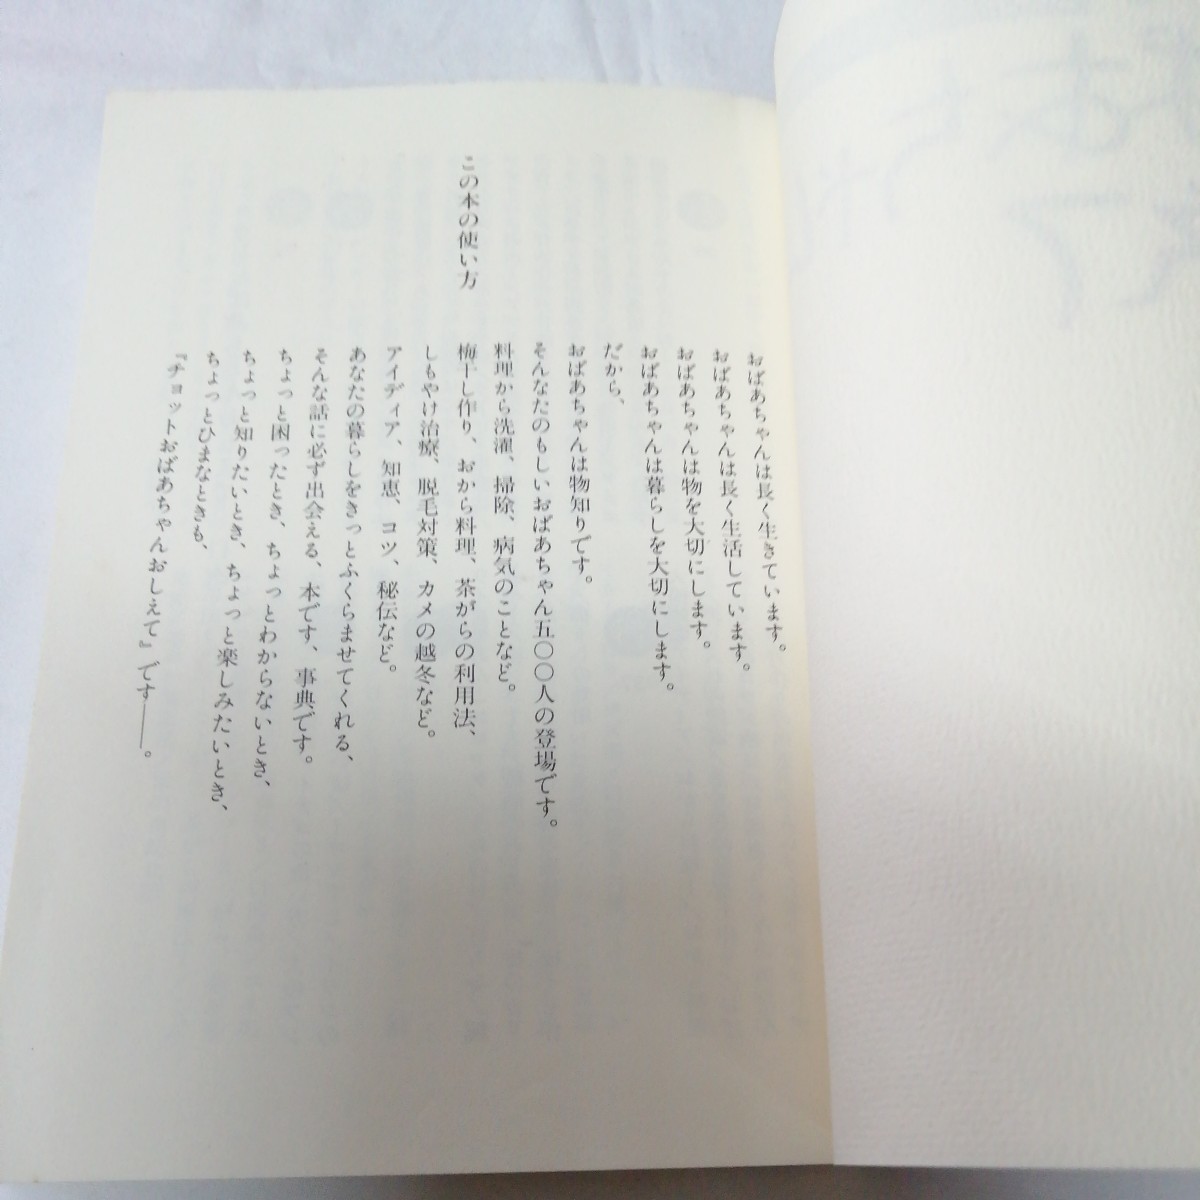 この本の使い方
おばあちゃんは長く生きています。
おばあちゃんは長く生活しています。
おばあちゃんは物を大切にします。
おばあちゃんは暮らしを大切にします。
だから、
おばあちゃんは物知りです。
そんなたのもしいおばあちゃん五〇〇人の登場です。
料理から洗濯、掃除、病気のことなど。
梅干し作り、おから料理、茶がらの利用法、
しもやけ治療、脱毛対策、カメの越冬など。
アイディア、知恵、コツ、秘伝など。
あなたの暮らしをきっとふくらませてくれる、
そんな話に必ず出会える、本です、事典です。
ちょっと困ったとき、ちょっとわからないとき、
ちょっと知りたいとき、ちょっと楽しみたいとき、
ちょっとひまなときも、
『チョットおばあちゃんおしえて』です──。